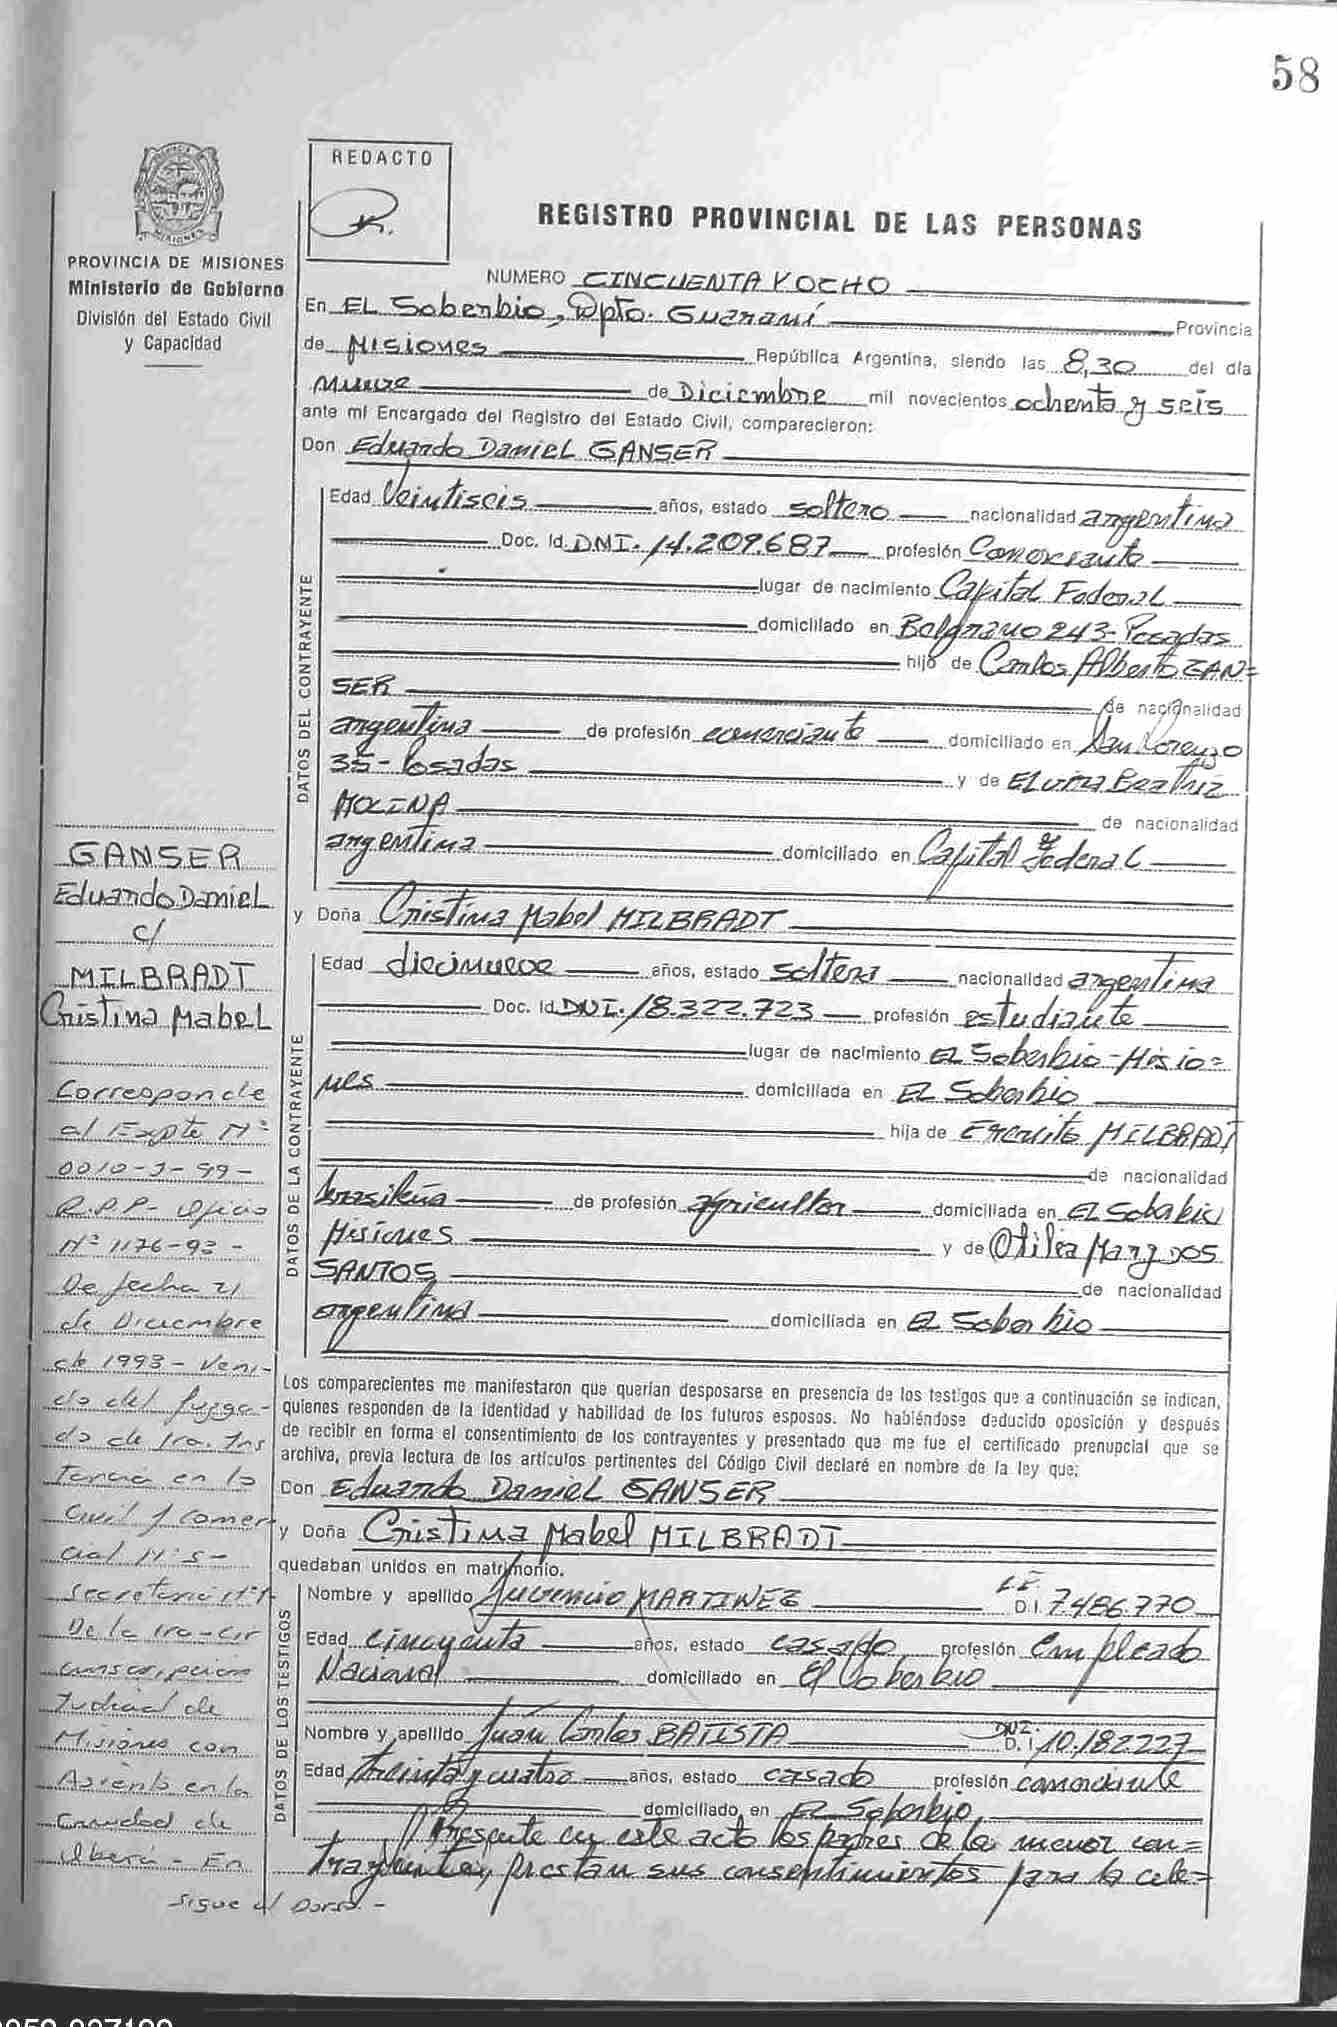 58
REDACTO
REGISTRO PROVINCIAL DE LAS PERSONAS
PROVINCIA DE MISIONES
Ministerio de Gobierno
División del Estado Civil
y Capacidad
NUMERO CINCUENTA Y OCHO
En EL Soberbio, Dpto. Guaraní Provincia
de Misiones República Argentina, siendo las 8,30 del día
nueve de Diciembre mil novecientos ochenta y seis
ante mí Encargado del Registro del Estado Civil, comparecieron:
Don Eduardo Daniel GANSER
DATOS DEL CONTRAYENTE
Edad Veintiseis años, estado soltero nacionalidad argentina
Doc. Id. DNI. 14.209.687 profesión Comerciante
lugar de nacimiento Capital Federal
domiciliado en Belgrano 243- Posadas
hijo de Carlos Alberto GAN=
SER de nacionalidad
argentina de profesión comerciante domiciliado en San Lorenzo
35- Posadas y de Elvira Beatriz
MOLINA de nacionalidad
argentina domiciliado en Capital Federal
y Doña Cristina Mabel MILBRADT
DATOS DE LA CONTRAYENTE
Edad diecinueve años, estado soltera nacionalidad argentina
Doc. Id DNI. 18.322.723 profesión estudiante
lugar de nacimiento EL Soberbio-Misio=
nes domiciliada en EL Soberbio
hija de MILBRADT
de nacionalidad
brasileña de profesión agricultor domiciliada en EL Soberbio
Misiones y de Otilia
SANTOS de nacionalidad
argentina domiciliada en EL Soberbio
Los comparecientes me manifestaron que querían desposarse en presencia de los testigos que a continuación se indican,
quienes responden de la identidad y habilidad de los futuros esposos. No habiéndose deducido oposición y después
de recibir en forma el consentimiento de los contrayentes y presentado que me fue el certificado prenupcial que se
archiva, previa lectura de los artículos pertinentes del Código Civil declaré en nombre de la ley que:
Don Eduardo Daniel GANSER
y Doña Cristina Mabel MILBRADT
quedaban unidos en matrimonio.
DATOS DE LOS TESTIGOS
Nombre y apellido Juvencio MARTINEZ LE D.I. 7.486.770
Edad cincuenta años, estado casado profesión Empleado
Nacional domiciliado en El Soberbio
Nombre y apellido Juan Carlos BATISTA DNI. D.I. 10.182.227
Edad treinta y cuatro años, estado casado profesión comerciante
domiciliado en EL Soberbio,
Presente en este acto los padres de la menor con=
trayente, prestan sus consentimientos para la cele=
GANSER
Eduardo Daniel
c/
MILBRADT
Cristina Mabel
Corresponde
al Expte Nº
0010-J-99-
R.P.P- Oficio
Nº 1176-93-
De fecha 21
de Diciembre
de 1993- Veni-
do del Juzga-
do de 1ra. Ins
tancia en lo
Civil y Comer
cial Nº 5-
Secretaria Nº1
De la 1ra-Cir
cunscripcion
Judicial de
Misiones con
Asiento en la
Ciudad de
Obera - En
Sigue al Dorso -